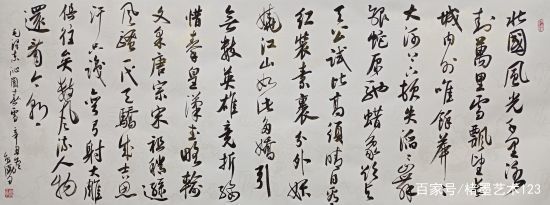 北國風光千里冰
封萬里雪飄望長
城内外唯餘莽莽
大河上下頓失滔滔山舞
銀蛇原馳蠟象欲與
天公試比高須晴日看
紅裝素裹分外妖
嬈江山如此多嬌引
無數英雄競折腰
惜秦皇漢武略輸
文采唐宗宋祖稍遜
風騷一代天驕成吉思
汗只識彎弓射大雕
俱往矣數風流人物
還看今朝
毛澤東沁園春雪辛丑
百家号/楮墨艺术123